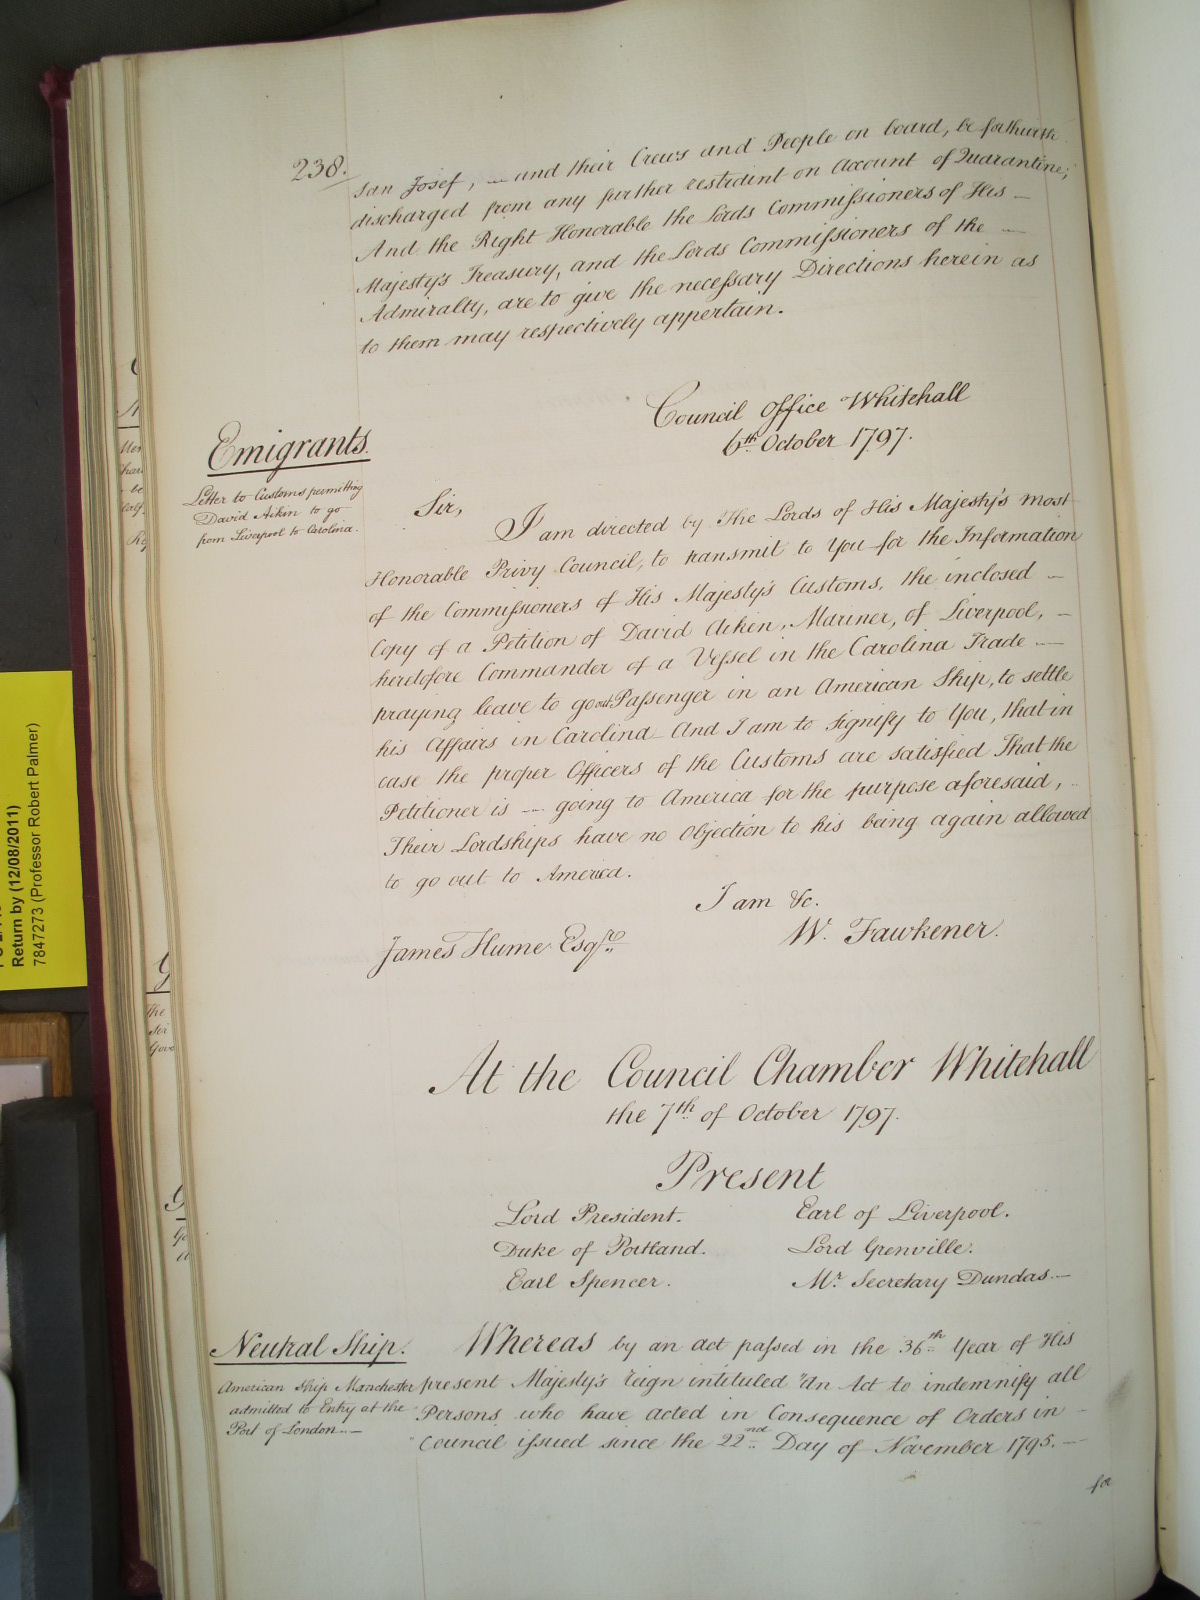 238.
San Josef, — and their Crews and People on board, be forthwith
discharged from any further restraint on Account of Quarantine;
And the Right Honorable the Lords Commissioners of His —
Majesty's Treasury, and the Lords Commissioners of the —
Admiralty, are to give the necessary Directions herein as
to them may respectively appertain.
Council Office Whitehall
6th October 1797.
Emigrants.
Letter to Customs permitting
David Aikin to go
from Liverpool to Carolina.
Sir,
I am directed by The Lords of His Majesty's most
Honorable Privy Council, to transmit to You for the Information
of the Commissioners of His Majesty's Customs, the inclosed —
Copy of a Petition of David Aiken, Mariner, of Liverpool, —
heretofore Commander of a Vessel in the Carolina Trade —
praying leave to go out Passenger in an American Ship, to settle
his Affairs in Carolina And I am to signify to You, that in
case the proper Officers of the Customs are satisfied That the
Petitioner is — going to America for the purpose aforesaid, -
Their Lordships have no Objection to his being again allowed
to go out to America.
I am &c.
W. Fawkener.
James Hume Esqre
At the Council Chamber Whitehall
the 7th of October 1797.
Present
Lord President. Earl of Liverpool.
Duke of Portland. Lord Grenville.
Earl Spencer. Mr. Secretary Dundas. —
Neutral Ship.
American Ship Manchester
admitted to Entry at the
Port of London. —
Whereas by an act passed in the 36th Year of His
present Majesty's reign intituled "An Act to indemnify all
"Persons who have acted in Consequence of Orders in -
"Council issued since the 22nd Day of November 1795. —
for
7847273 (Professor Robert Palmer)
Return by (12/08/2011)